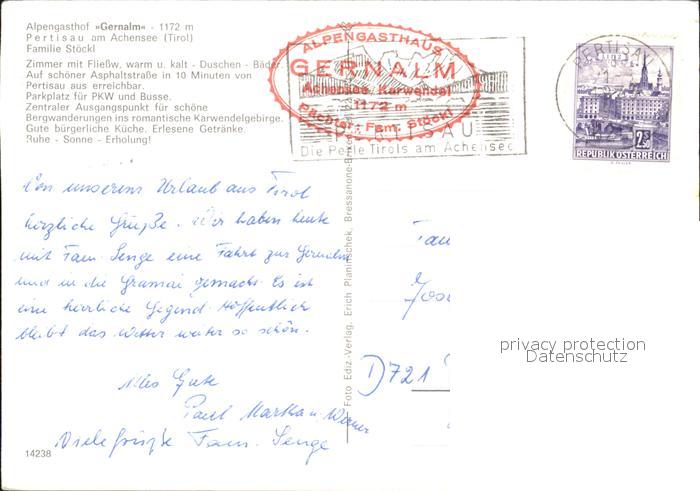 Alpengasthof »Gernalm« - 1172 m
Pertisau am Achensee (Tirol)
Familie Stöckl
Zimmer mit Fließw, warm u. kalt - Duschen - Bäder
Auf schöner Asphaltstraße in 10 Minuten von
Pertisau aus erreichbar.
Parkplatz für PKW und Busse.
Zentraler Ausgangspunkt für schöne
Bergwanderungen ins romantische Karwendelgebirge.
Gute bürgerliche Küche. Erlesene Getränke.
Ruhe - Sonne - Erholung!
ALPENGASTHAUS
GERNALM
Achensee, Karwendel
1172 m
Pächter: Fam. Stöckl
Die Perle Tirols am Achensee
PERTISAU
2.50
S
REPUBLIK ÖSTERREICH
Von unserem Urlaub aus Tirol
herzliche Grüße. Wir haben heute
mit Fam. Senge eine Fahrt zur Gernalm
und in die Gramai gemacht. Es ist
eine herrliche Gegend. Hoffentlich
bleibt das Wetter weiter so schön.
Alles Gute
Paul Martha u. Werner
Viele Grüße Fam. Senge
Foto Ediz.-Verlag. Erich Planinschek, Bressanone-
Fam
Jos
D 721
privacy protection
Datenschutz
14238